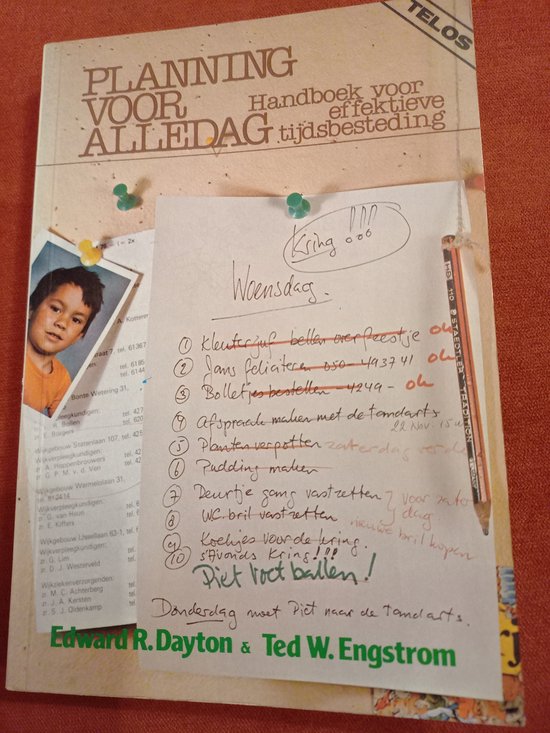 TELOS
PLANNING
VOOR
ALLEDAG
Handboek voor
effektieve
tijdsbesteding
Kring !!!
Woensdag.
① Kleuterjuf bellen over feestje ok
② Jans feliciteren 050-493741 ok
③ Bolletjes bestellen - 4249- ok
④ Afspraak maken met de tandarts
22 Nov. 15 u
⑤ Planten verpotten zaterdag
⑥ Pudding maken
⑦ Deurtje gang vastzetten voor zaterdag
⑧ WC. bril vastzetten nieuwe bril kopen
⑨ Koekjes voor de kring.
⑩ s'Avonds Kring!!!
Piet voetballen!
Donderdag moet Piet naar de tandarts.
A. Komm
straat 7, tel. 6136
tel. 6185
tel. 6144
Bonte Wetering 31,
pleegkundigen:
H. Bollen tel. 42
E. Burgers tel. 620
Wijkgebouw Statenlaan 107, tel. 425
Wijkverpleegkundigen:
zr. A. Hoppenbrouwers tel. 42
zr. G. P. M. v. d. Ven tel. 42
Wijkgebouw Warmelolaan 31,
tel. 612414
Wijkverpleegkundigen:
zr. G. van Heun tel.
zr. E. Kiffers tel.
Wijkgebouw IJwellaan 63-1, tel.
Wijkverpleegkundigen:
zr. G. Lim tel.
zr. D. J. Westerveld tel.
Wijkziekenverzorgenden:
zr. M. C. Achterberg tel.
zr. J. A. Kersten tel.
zr. S. J. Oldenkamp tel.
STAEDTLER TRADITION
Edward R. Dayton & Ted W. Engstrom